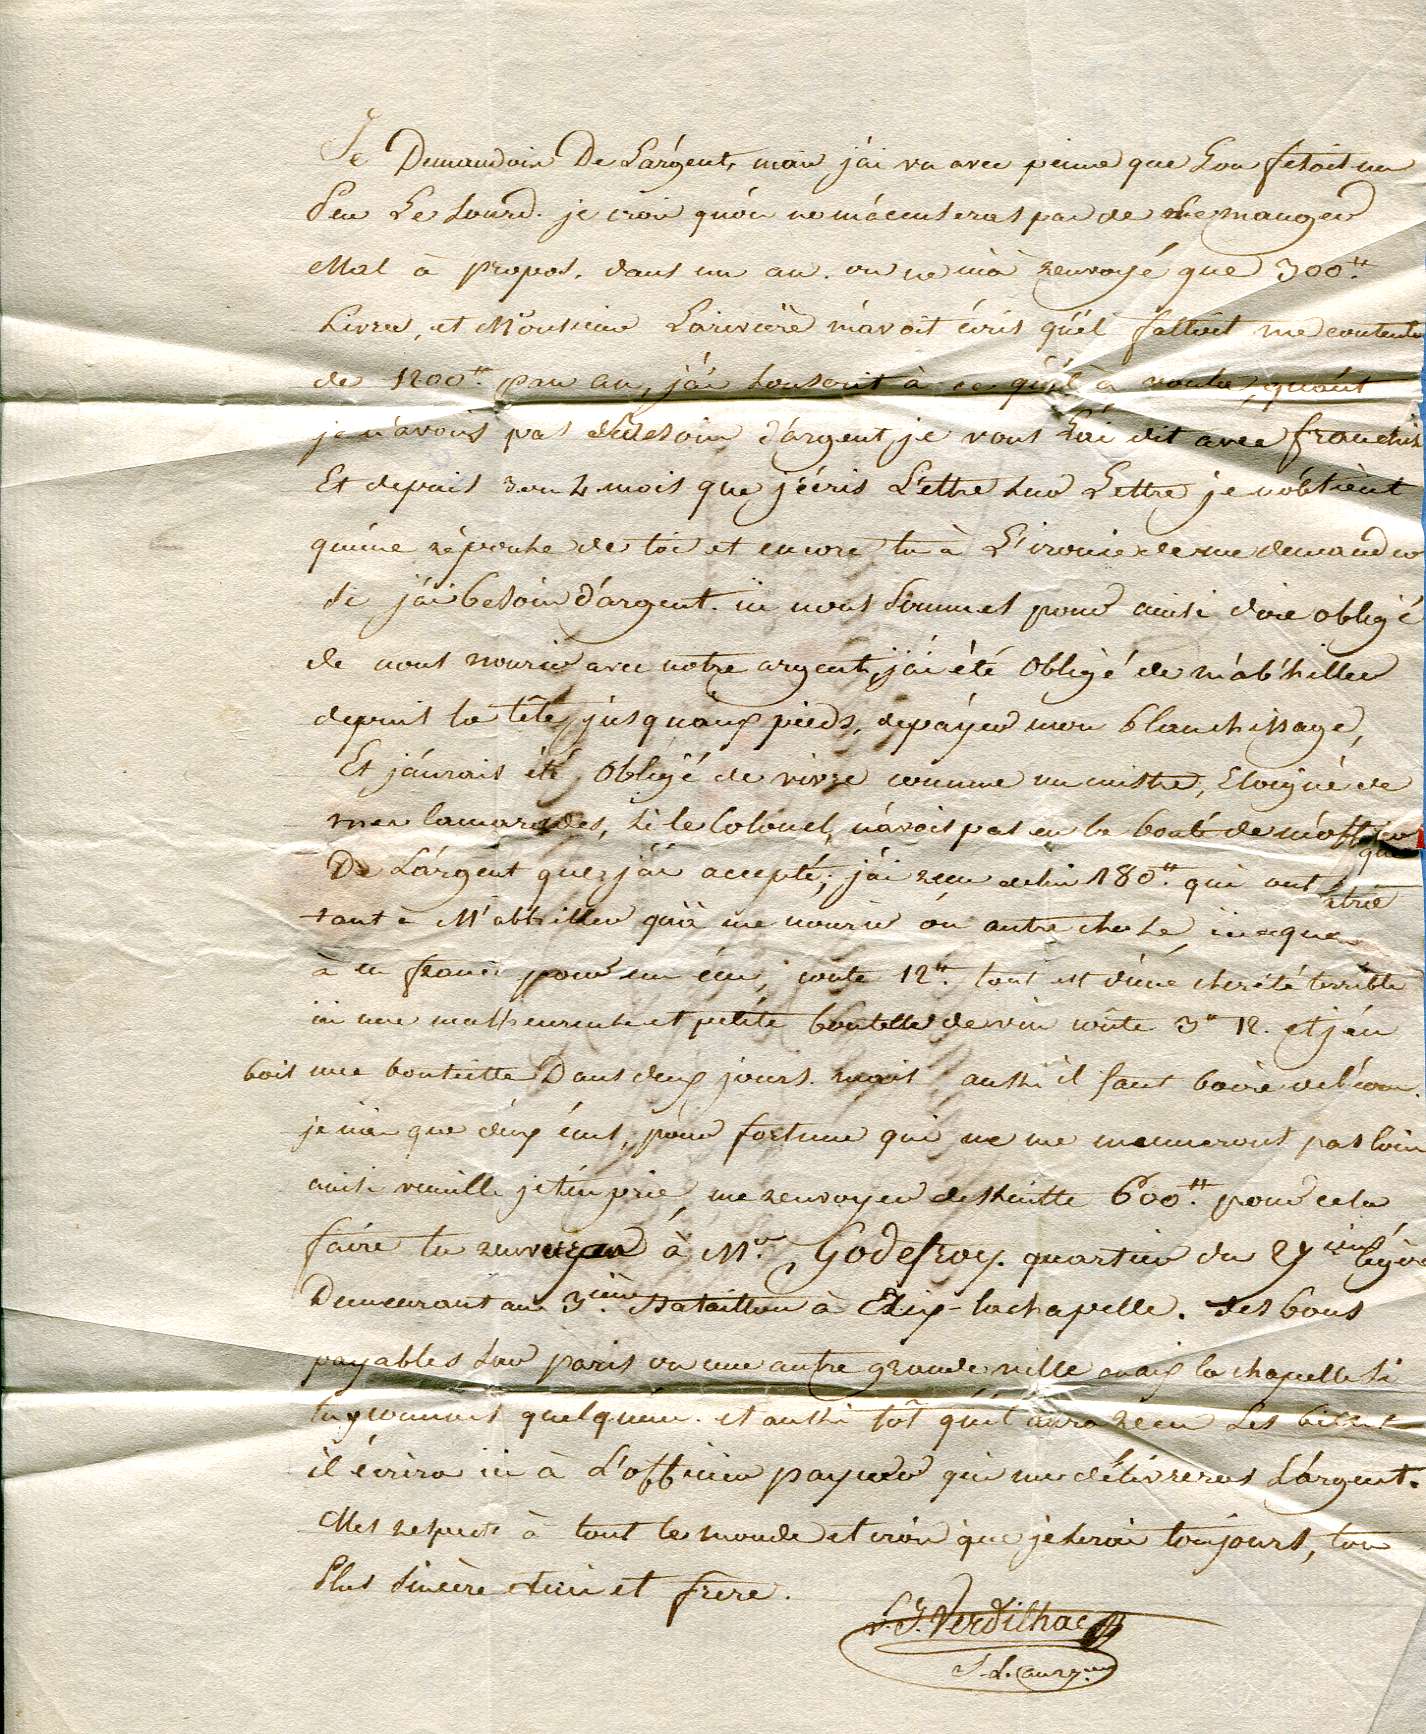 Je Demandois De L'argent, mais j'ai vu avec peine que L'on fesoit un
Peu Le Sourd. je crois qu'on ne m'acuseras pas de Le manger
Mal à propos. dans un an. on ne m'a renvoyé que 300.tt
Livres, et Monsieur Lariviere m'avoit écris qu'il falloit me contenter
de 1200.tt par an, j'ai Souscrit à ce qu'il à voulu, quant
je n'avois pas besoin d'argent, je vous L'ai dit avec franchise
Et depuis 3 ou 4 mois que j'écris Lettre Sur Lettre je n'obtient
qu'une réponse de toi et encore tu à L'ironie de me demander
Si j'ai besoin d'argent. ici nous Sommes pour ainsi dire obligé
de nous nourir avec notre argent, j'ai été Obligé de m'abhiller
depuis la tête jusqu'aux pieds, de payer mon blanchissage,
Et j'aurois été Obligé de vivre comme un cuistre, Eloigné de
mes Camarades, Si le Colonel, n'avois pas eu la bonté de m'offrir
De L'argent que j'ai accepté; j'ai reçu de lui 180.tt qui ont été
tant à M'abhiller qu'à me nourir ou autre chose, ici ce que
à en france pour un écu, coute 12.tt tout est d'une cherété terrible
ici une malheureuse et petite bouteille de vin coûte 3tt 12. et j'en
bois une bouteille Dans deux jours. mais aussi il faut boire de l'eau.
je n'ai que deux écus, pour fortune qui ne me meneront pas loin
ainsi veuille je t'en prie, me renvoyer desuitte 600.tt pour cela
faire tu renverras à Mr. Godefroy. quartier du 27ieme Légère
Demeurant au 3.ieme Bataillon à Aix-lachapelle. des bons
payables Sur paris ou une autre grande ville ou aix la chapelle Si
tu y connais quelqu'un. et aussi tôt qu'il aura reçu Les billets
il écrira ici à L'officier payeur qui me délivreras L'argent.
Mes respects à tout le monde et crois que je serai toujours, ton
Plus Sincère Ami et frere.
V. J. Verdilhac